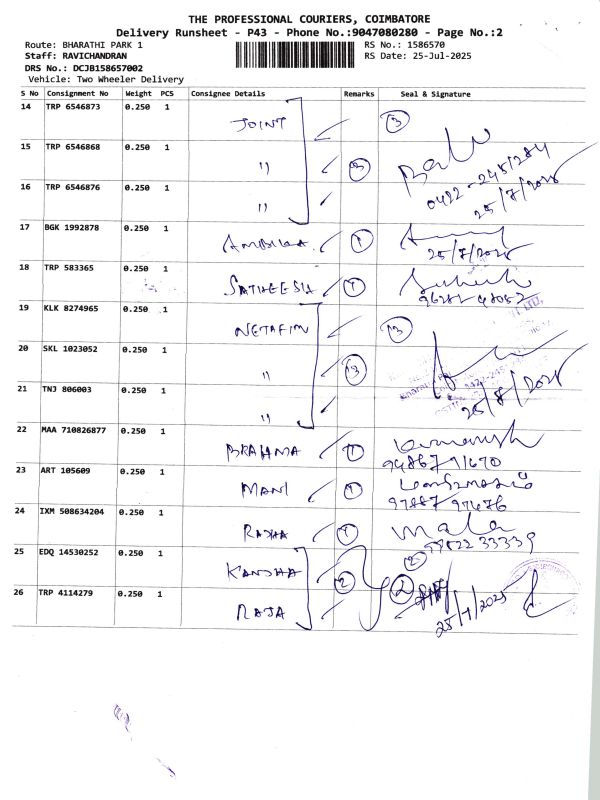 THE PROFESSIONAL COURIERS, COIMBATORE
Delivery Runsheet - P43 - Phone No.:9047080280 - Page No.:2
Route: BHARATHI PARK 1
RS No.: 1586570
Staff: RAVICHANDRAN
RS Date: 25-Jul-2025
DRS No.: DCJB158657002
Vehicle: Two Wheeler Delivery
S No Consignment No Weight PCS Consignee Details Remarks Seal & Signature
14 TRP 6546873 0.250 1 JOINT 3
15 TRP 6546868 0.250 1 " 3
16 TRP 6546876 0.250 1 "
25/7/2025
17 BGK 1992878 0.250 1 AMBIKA 1
25/7/2025
18 TRP 583365 0.250 1 SATHEESH 1
19 KLK 8274965 0.250 1 NETAFIM 3
20 SKL 1023052 0.250 1 " 3
21 TNJ 806003 0.250 1 "
22 MAA 710826877 0.250 1 BRAHMA 1
94867 91670
23 ART 105609 0.250 1 MANI 1
97887 97676
24 IXM 508634204 0.250 1 RADHA 1 mala
99822 33339
25 EDQ 14530252 0.250 1 2 2
26 TRP 4114279 0.250 1 RAJA 2
25/7/2025